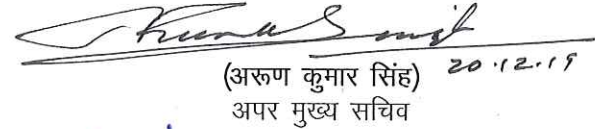 (अरूण कुमार सिंह) 20.12.19
अपर मुख्य सचिव